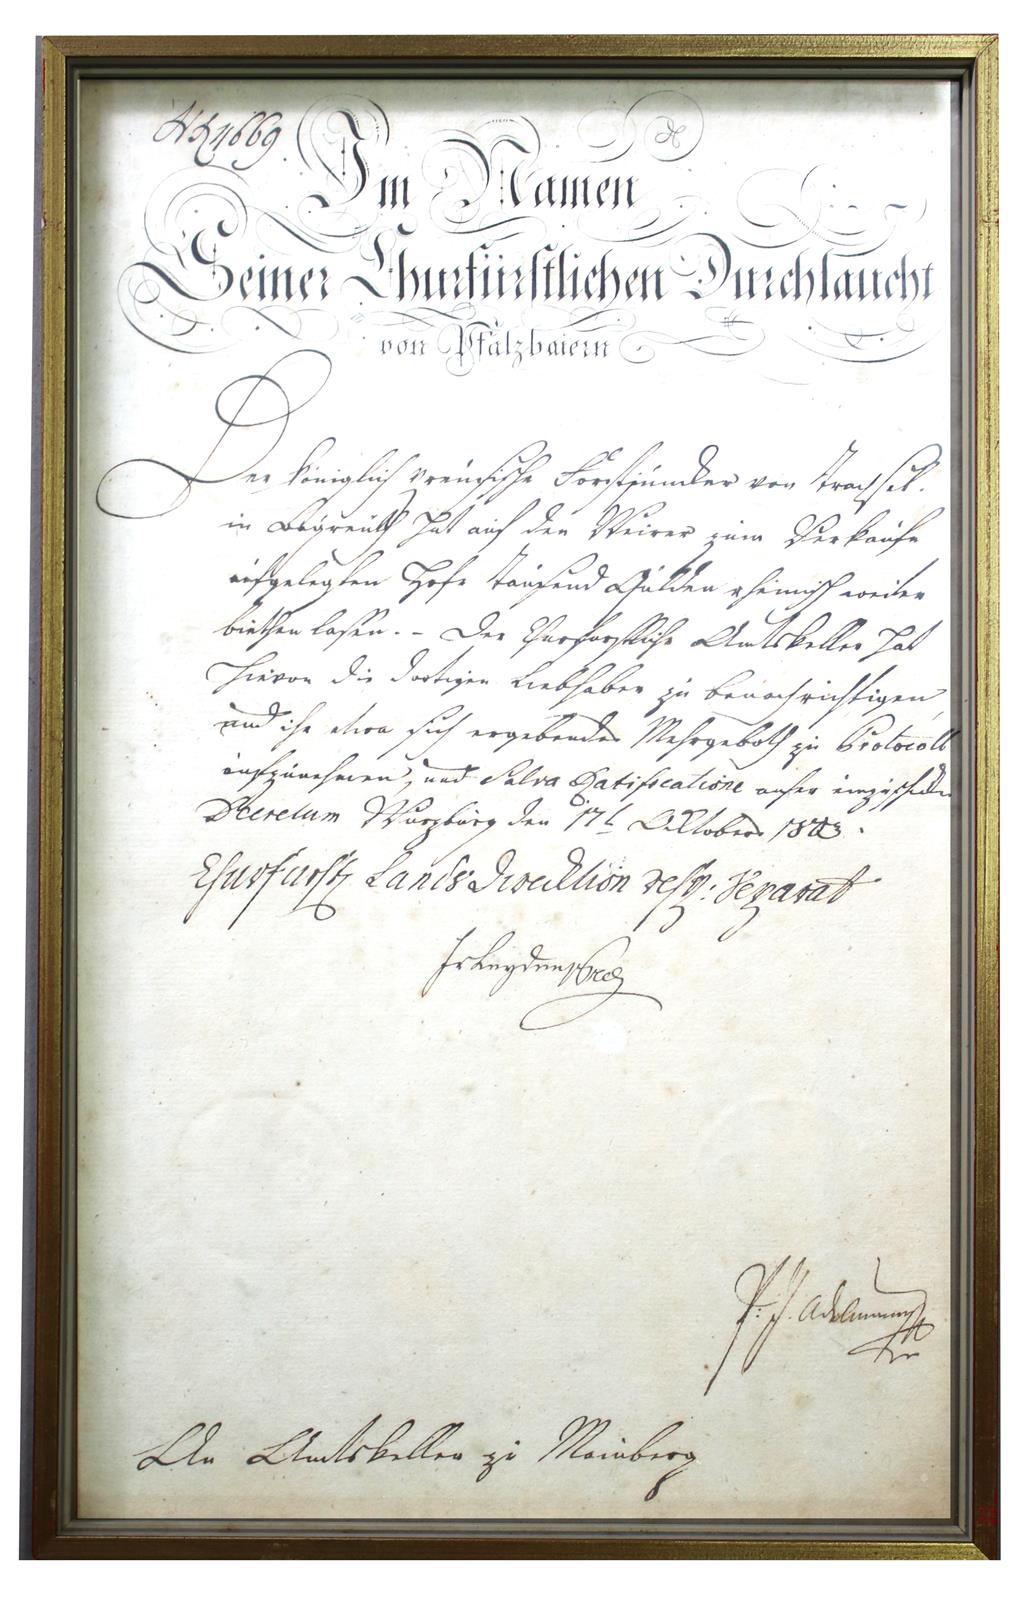 4669
Im Namen
Seiner Churfürstlichen Durchlaucht
von Pfalzbaiern
Der königlich preußische Forstjuncker von
in hat auf den Weirer zum Verkaufe
aufgelegten Hofe tausend Gulden rheinisch weiter
biethen lassen. - Der Churfürstliche Amtskeller hat
hievon die dortigen Liebhaber zu benachrichtigen,
und ihr etwa sich ergebendes Mehrgeboth zu Protocoll
aufzunehmen, und Salva Ratificatione anher einzuschicken
Decretum Würzburg den 17t October 1803.
Churfürstl Landsdirecktion Separat
P: J. Adelmann
An Amtskeller zu Mainberg